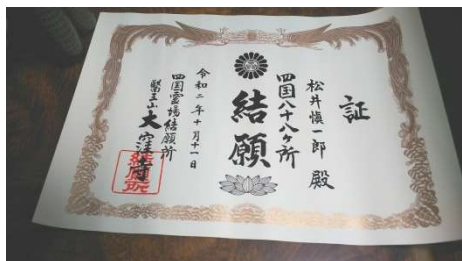 証
松井慎一郎 殿
四国八十八ヶ所
結願
令和二年十月十一日
四国霊場結願所
医王山大窪寺
結願所